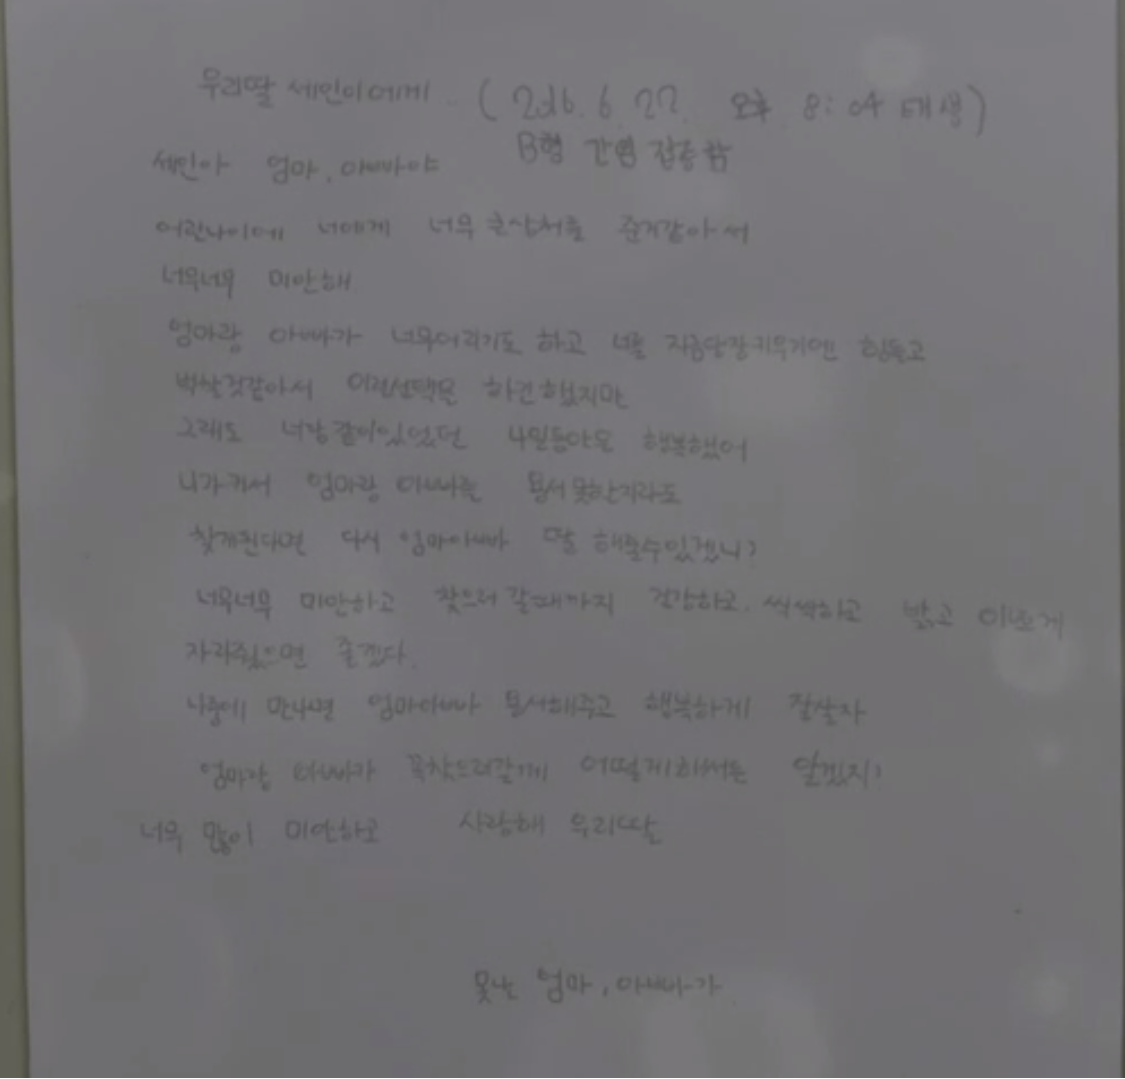 우리딸 세인이에게 (2016. 6. 27. 오후 8:04 태생)
B형 간염 접종함
세인아 엄마, 아빠야
어린나이에 너에게 너무 큰상처를 준거같아서
너무너무 미안해
엄마랑 아빠가 너무어리기도 하고 널 지금당장키우기엔 힘들고
벅찰것같아서 이런선택은 하긴했지만
그래도 너랑 같이있었던 4일동안은 행복했어
니가커서 엄마랑 아빠를 용서못한지라도
찾게된다면 다시 엄마아빠 딸 해줄수있겠니?
너무너무 미안하고 찾으러 갈때까지 건강하고, 씩씩하고 밝고 이쁘게
자라줬으면 좋겠다.
나중에 만나면 엄마아빠 용서해주고 행복하게 잘살자
엄마랑 아빠가 꼭찾으러갈게 어떻게해서든 알겠지?
너무 많이 미안하고 사랑해 우리딸
못난 엄마, 아빠가